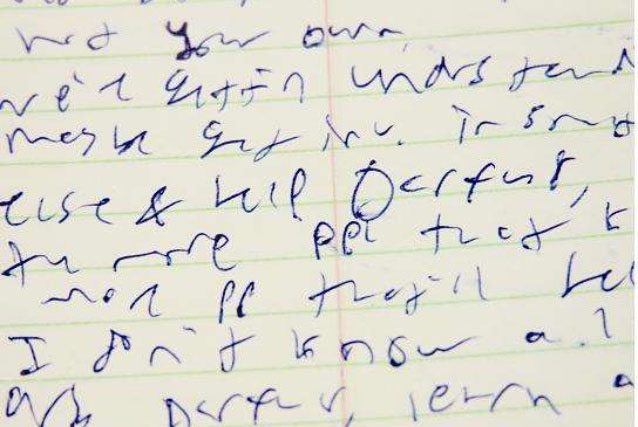 not your own
we'll gettin undrstand
maybe get inv. in sm
else & help Darfur,
the more ppl that k
mor pp that'll hel
I don't know a l
Darfur, learn a